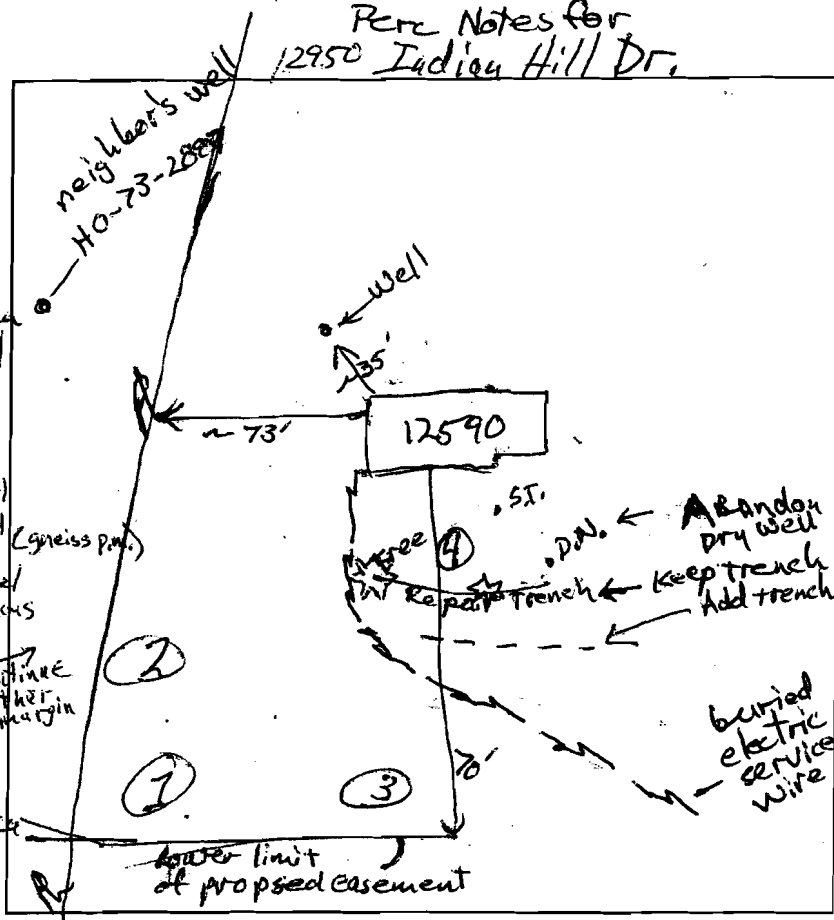 Perc Notes for
12950 Indian Hill Dr.
neighbor's well
HO-73-288
Well
~35'
~73'
12590
.S.T.
.D.W.
Abandon
Dry well
(gneiss p.m.)
tree
4
Repair Trench
Keep trench
Add trench
2
margin
buried
electric
service
wire
1
3
70'
Lower limit
of propsed easement